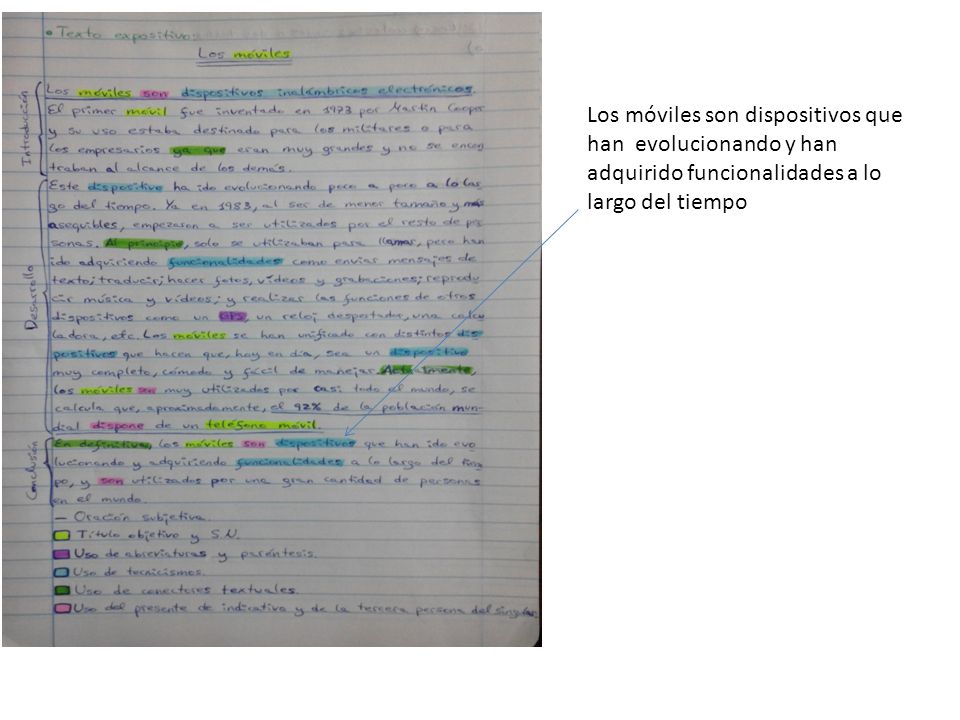 • Texto expositivo:
Los móviles
Introducción
Los móviles son dispositivos inalámbricos electrónicos.
El primer móvil fue inventado en 1973 por Martin Cooper
y su uso estaba destinado para los militares o para
los empresarios ya que eran muy grandes y no se encon
traban al alcance de los demás.
Desarrollo
Este dispositivo ha ido evolucionando poco a poco a lo lar
go del tiempo. Ya en 1983, al ser de menor tamaño y más
asequibles, empezaron a ser utilizados por el resto de per
sonas. Al principio, solo se utilizaban para llamar, pero han
ido adquiriendo funcionalidades como enviar mensajes de
texto; traducir; hacer fotos, vídeos y grabaciones; reprodu
cir música y vídeos; y realizar las funciones de otros
dispositivos como un GPS, un reloj despertador, una calcu
ladora, etc. Los móviles se han unificado con distintos dis
positivos que hacen que, hoy en día, sea un dispositivo
muy completo, cómodo y fácil de manejar. Actualmente,
los móviles son muy utilizados por casi todo el mundo, se
calcula que, aproximadamente, el 92% de la población mun-
dial dispone de un teléfono móvil.
Conclusión
En definitiva, los móviles son dispositivos que han ido evo
lucionando y adquiriendo funcionalidades a lo largo del tiem
po, y son utilizados por una gran cantidad de personas
en el mundo.
— Oración subjetiva.
Título objetivo y S.N.
Uso de abreviaturas y paréntesis.
Uso de tecnicismos.
Uso de conectores textuales.
Uso del presente de indicativa y de la tercera persona del singular
Los móviles son dispositivos que
han evolucionando y han
adquirido funcionalidades a lo
largo del tiempo